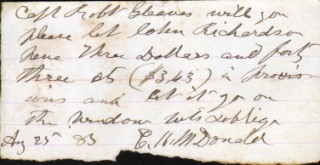 Capt Robt Gleaves will you
please let John Richardson
have Three Dollars and forty
three cts ($3.43) in Provis
ions and let it go on
the and oblige
Aug 25th 83 C. H. McDonald